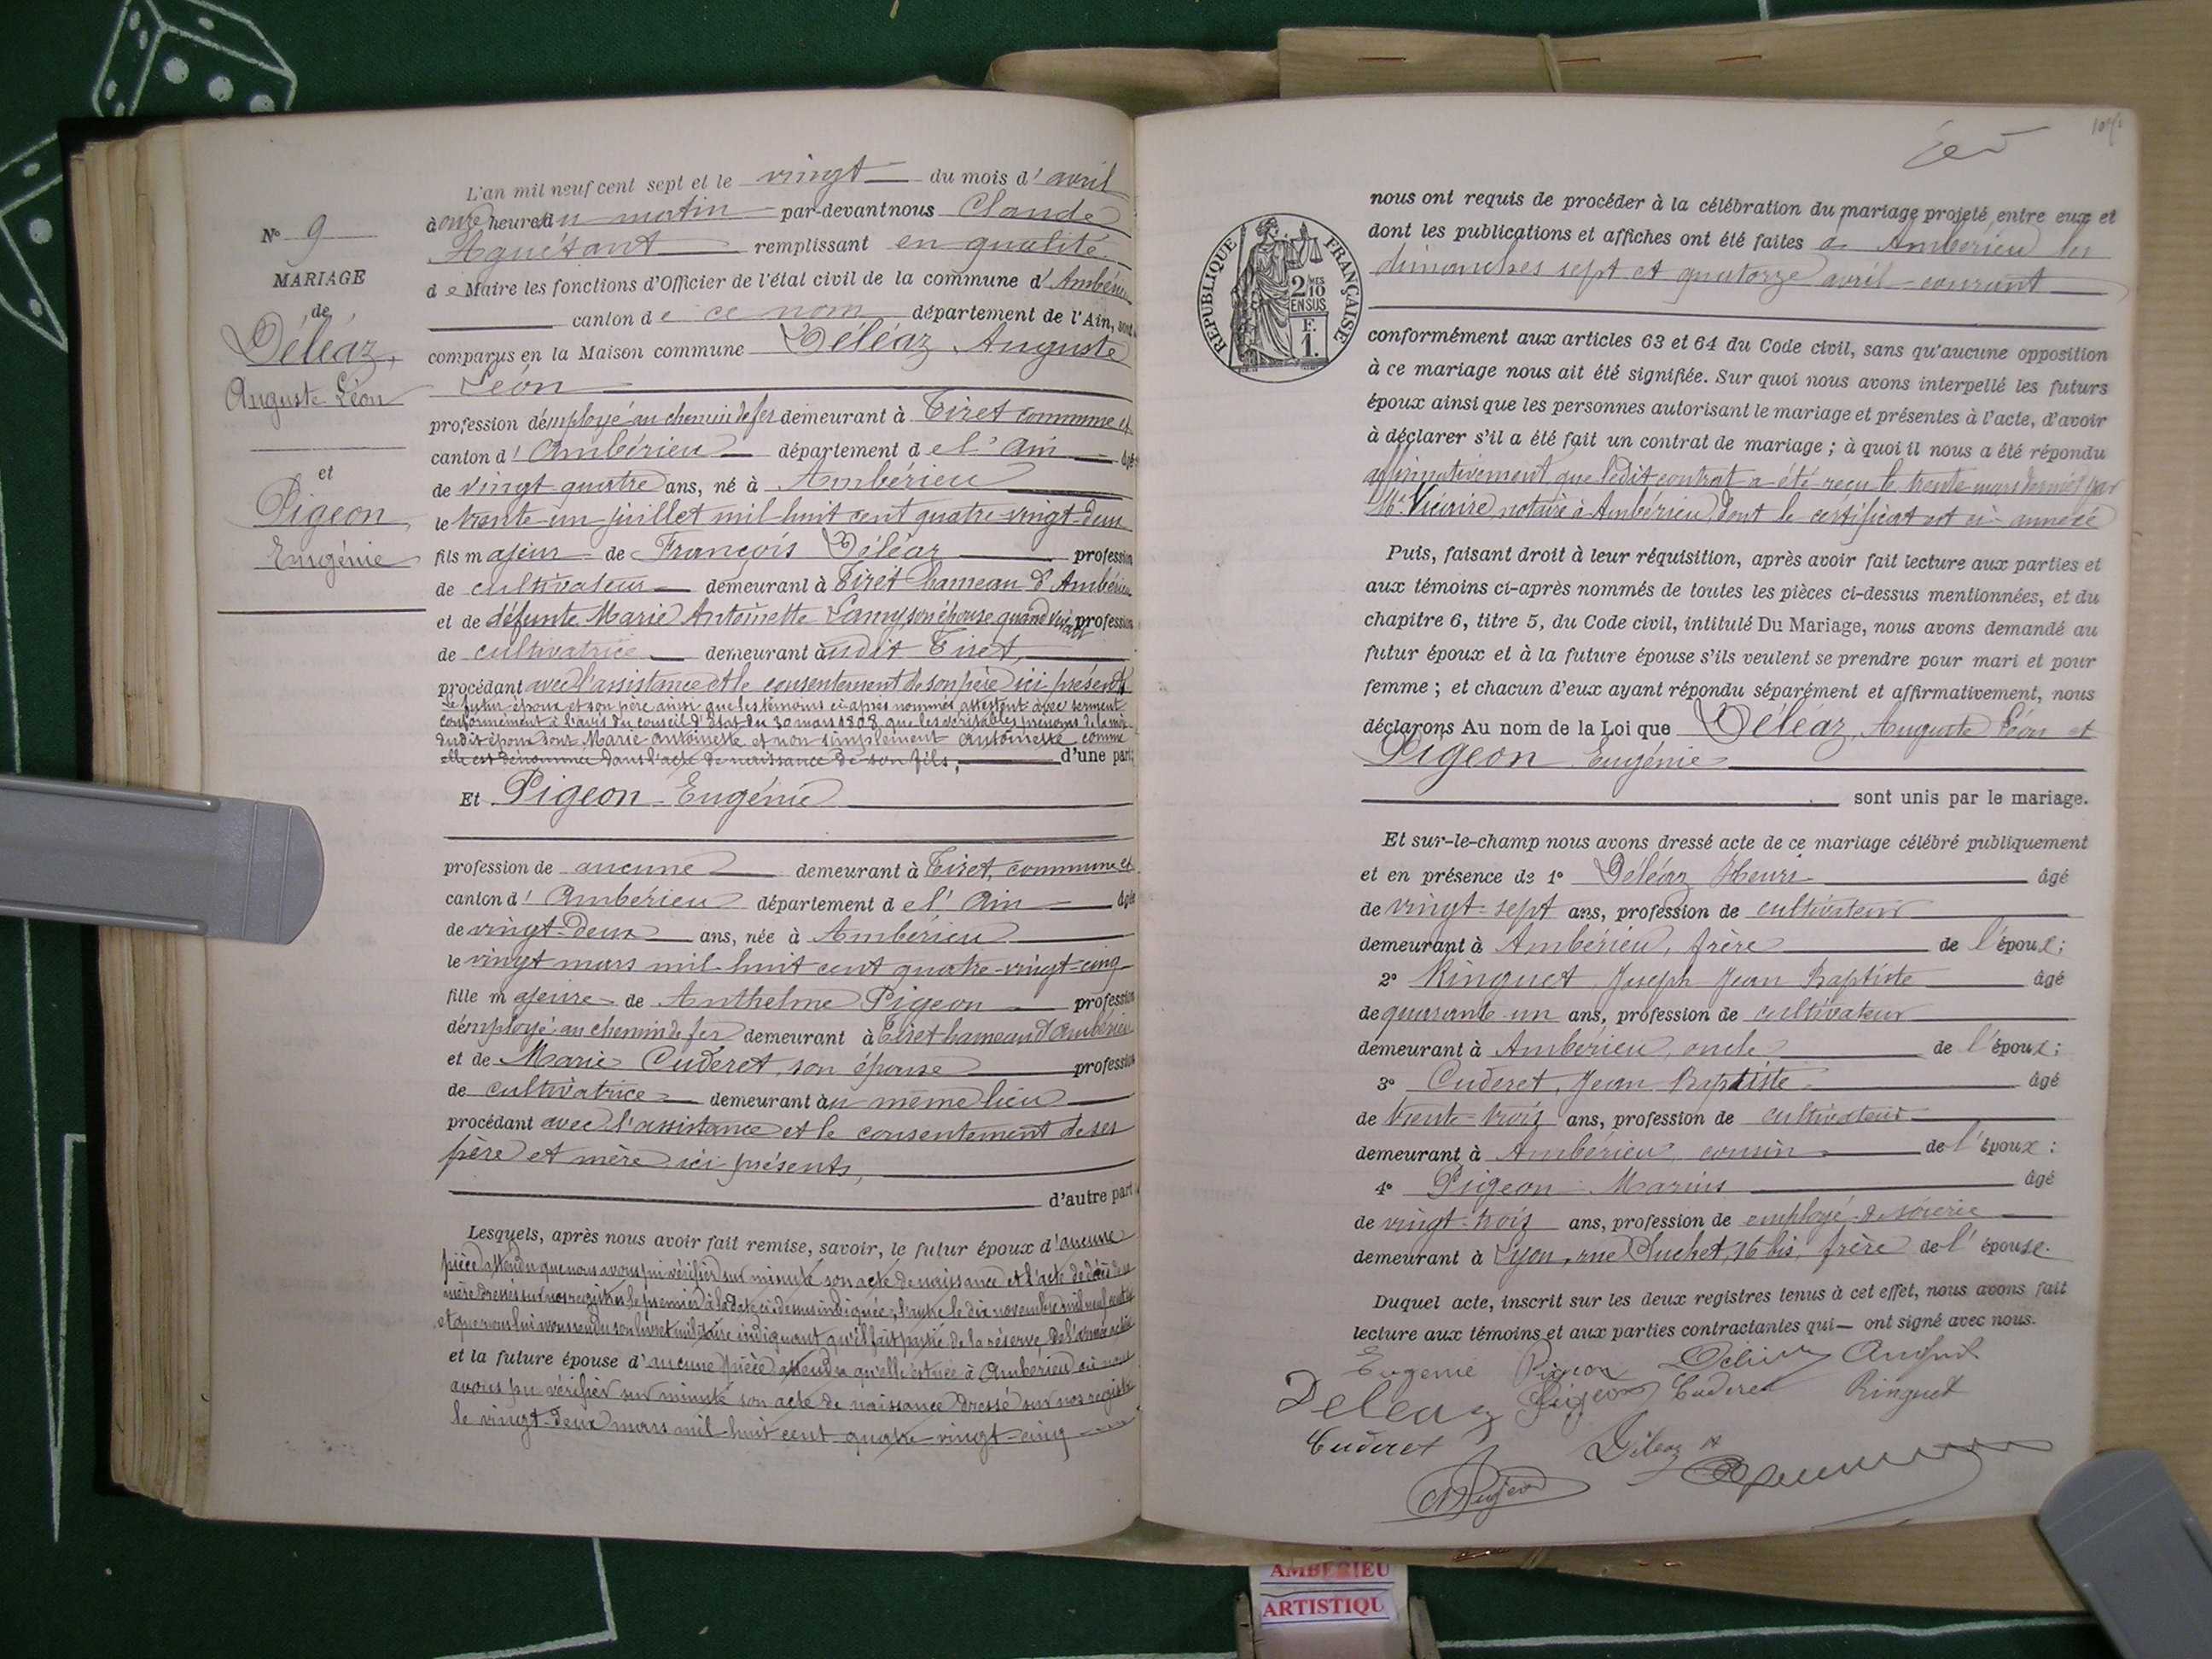 N° 9
MARIAGE
de
Déléaz,
Auguste Léon
et
Pigeon
Eugénie
L'an mil neuf cent sept et le vingt du mois d'avril
à onze heures du matin par-devant nous Claude
Aguétant remplissant en qualité
de Maire les fonctions d'Officier de l'état civil de la commune d'Ambérieu
canton de ce nom département de l'Ain, sont
comparus en la Maison commune Déléaz Auguste
Léon
profession d'employé au chemin de fer demeurant à Tiret commune et
canton d'Ambérieu département de l'Ain âgé
de vingt quatre ans, né à Ambérieu
le trente-un juillet mil huit cent quatre-vingt-deux
fils majeur de François Déléaz profession
de cultivateur demeurant à Tiret hameau d'Ambérieu
et de défunte Marie Antoinette Lamy son épouse quand vivait profession
de cultivatrice demeurant audit Tiret,
procédant avec l'assistance et le consentement de son père ici présent
Le futur époux et son père ainsi que les témoins ci-après nommés attestent avec serment
conformément à l'avis du conseil d'Etat du 30 mars 1808 que les véritables prénoms de la mère
dudit époux sont Marie Antoinette et non simplement Antoinette comme
elle est dénommée dans l'acte de naissance de son fils, d'une part;
Et Pigeon Eugénie
profession de aucune demeurant à Tiret, commune et
canton d'Ambérieu département de l'Ain âgée
de vingt-deux ans, née à Ambérieu
le vingt mars mil huit cent quatre-vingt-cinq
fille majeure de Anthelme Pigeon profession
d'employé au chemin de fer demeurant à Tiret hameau d'Ambérieu
et de Marie Cuderet, son épouse profession
de cultivatrice demeurant au même lieu
procédant avec l'assistance et le consentement de ses
père et mère ici présents,
d'autre part
Lesquels, après nous avoir fait remise, savoir, le futur époux d'aucune
pièce attendu que nous avons pu vérifier sur minute son acte de naissance et l'acte de décès de sa
mère dressés sur nos registres le premier à la date ci-dessus indiquée, l'autre le dix novembre mil neuf cent
et que nous lui avons rendu son livret militaire indiquant qu'il fait partie de la réserve de l'armée active
et la future épouse d'aucune pièce attendu qu'elle est née à Ambérieu où nous
avons pu vérifier sur minute son acte de naissance dressé sur nos registres
le vingt-deux mars mil huit cent quatre-vingt-cinq
nous ont requis de procéder à la célébration du mariage projeté entre eux et
dont les publications et affiches ont été faites à Ambérieu les
dimanches sept et quatorze avril courant
RÉPUBLIQUE FRANÇAISE
2 MES
10
EN SUS
F.
1.
conformément aux articles 63 et 64 du Code civil, sans qu'aucune opposition
à ce mariage nous ait été signifiée. Sur quoi nous avons interpellé les futurs
époux ainsi que les personnes autorisant le mariage et présentes à l'acte, d'avoir
à déclarer s'il a été fait un contrat de mariage ; à quoi il nous a été répondu
affirmativement que ledit contrat a été reçu le trente mars dernier par
Me Vicaire, notaire à Ambérieu, dont le certificat est ci-annexé
Puis, faisant droit à leur réquisition, après avoir fait lecture aux parties et
aux témoins ci-après nommés de toutes les pièces ci-dessus mentionnées, et du
chapitre 6, titre 5, du Code civil, intitulé Du Mariage, nous avons demandé au
futur époux et à la future épouse s'ils veulent se prendre pour mari et pour
femme ; et chacun d'eux ayant répondu séparément et affirmativement, nous
déclarons Au nom de la Loi que Déléaz, Auguste Léon et
Pigeon Eugénie
sont unis par le mariage.
Et sur-le-champ nous avons dressé acte de ce mariage célébré publiquement
et en présence de 1° Déléaz Henri âgé
de vingt-sept ans, profession de cultivateur
demeurant à Ambérieu, frère de l'époux;
2° Ringuet Joseph Jean Baptiste âgé
de quarante-un ans, profession de cultivateur
demeurant à Ambérieu, oncle de l'époux;
3° Cuderet, Jean Baptiste âgé
de trente-trois ans, profession de cultivateur
demeurant à Ambérieu, cousin de l'époux :
4° Pigeon Marius âgé
de vingt-trois ans, profession de employé de soierie
demeurant à Lyon, rue 16 bis, frère de l'épouse.
Duquel acte, inscrit sur les deux registres tenus à cet effet, nous avons fait
lecture aux témoins et aux parties contractantes qui ont signé avec nous.
Eugenie Pigeon
Deleaz Pigeon Cuderet Ringuet
Cuderet Déléaz H
AMBERIEU
ARTISTIQU